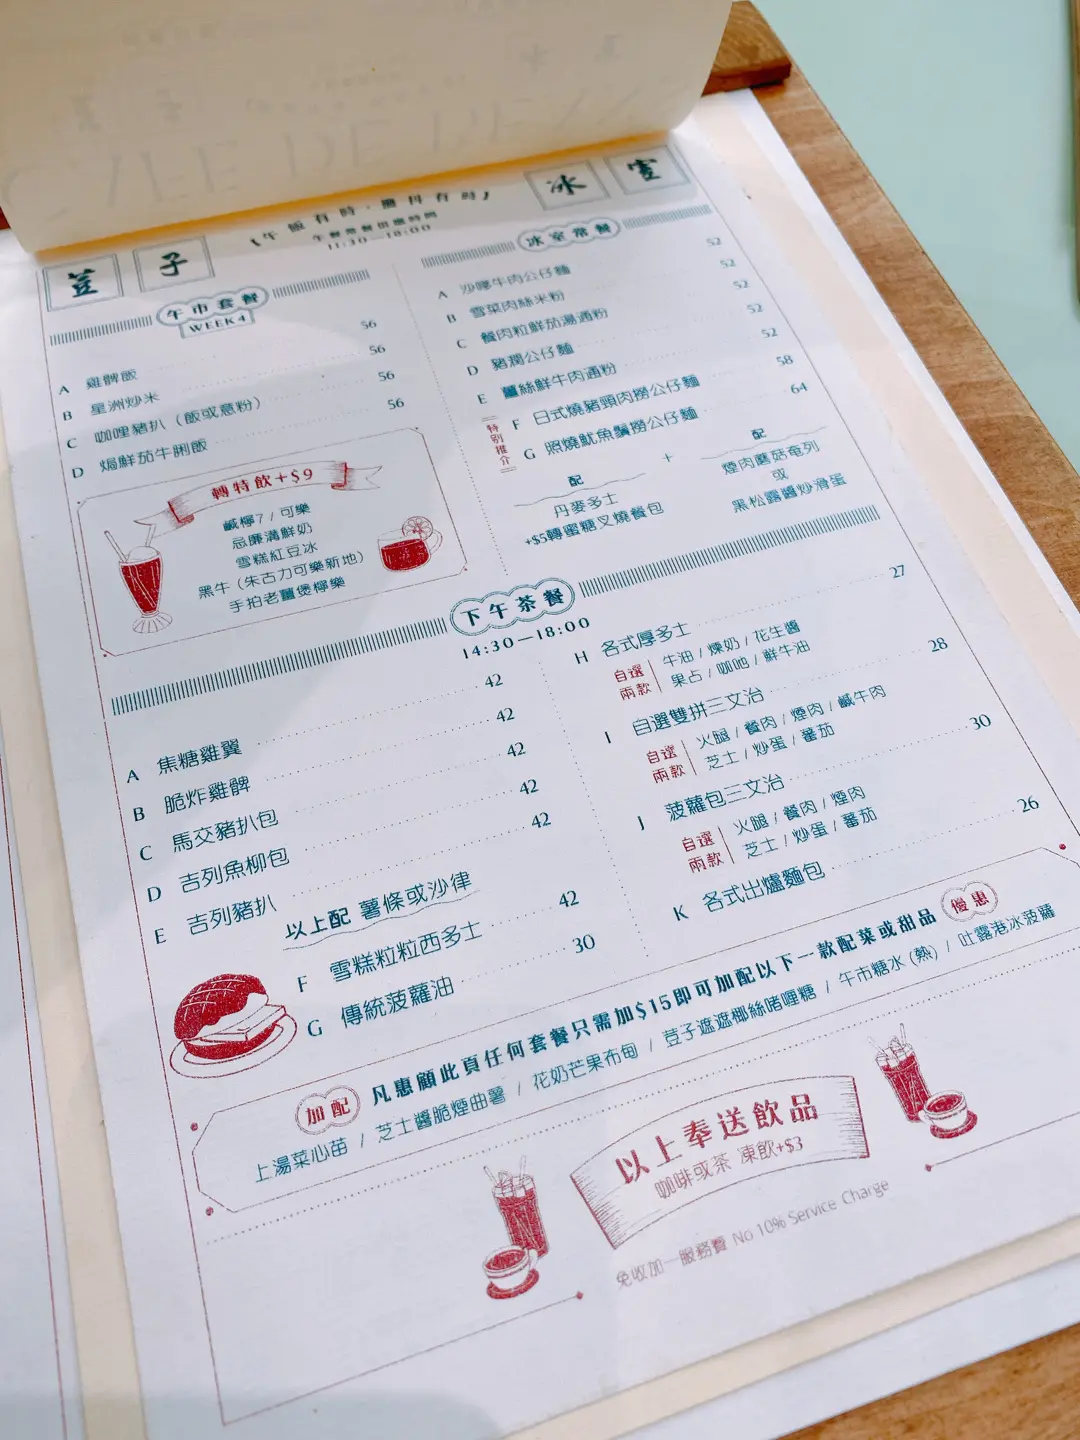 荳子
冰室
午飯有時·應得有時
午餐常餐供應時間
11:30—18:00
午市套餐
WEEK4
A 雞髀飯 56
B 星洲炒米 56
C 咖哩豬扒（飯或意粉） 56
D 焗鮮茄牛脷飯 56
轉特飲+$9
鹹檸7 / 可樂
忌廉溝鮮奶
雪糕紅豆冰
黑牛 (朱古力可樂新地)
手拍老薑煲檸樂
冰室常餐
A 沙嗲牛肉公仔麵 52
B 雪菜肉絲米粉 52
C 餐肉粒鮮茄湯通粉 52
D 豬潤公仔麵 52
E 薑絲鮮牛肉通粉 52
特別推介
F 日式燒豬頸肉撈公仔麵 58
G 照燒魷魚鬚撈公仔麵 64
配
丹麥多士
+$5轉蜜糖叉燒餐包
+
配
煙肉蘑菇奄列
或
黑松露醬炒滑蛋
下午茶餐
14:30—18:00
A 焦糖雞翼 42
B 脆炸雞髀 42
C 馬交豬扒包 42
D 吉列魚柳包 42
E 吉列豬扒 42
以上配 薯條或沙律
F 雪糕粒粒西多士 42
G 傳統菠蘿油 30
H 各式厚多士 27
自選兩款
牛油 / 煉奶 / 花生醬
果占 / 咖吔 / 鮮牛油
I 自選雙拼三文治 28
自選兩款
火腿 / 餐肉 / 煙肉 / 鹹牛肉
芝士 / 炒蛋 / 蕃茄
J 菠蘿包三文治 30
自選兩款
火腿 / 餐肉 / 煙肉
芝士 / 炒蛋 / 蕃茄
K 各式出爐麵包 26
加配 凡惠顧此頁任何套餐只需加$15即可加配以下一款配菜或甜品 優惠
上湯菜心苗 / 芝士醬脆煙曲薯 / 花奶芒果布甸 / 荳子遮遮椰絲啫喱糖 / 午市糖水 (熱) / 吐露港冰菠蘿
以上奉送飲品
咖啡或茶 凍飲+$3
免收加一服務費 No 10% Service Charge